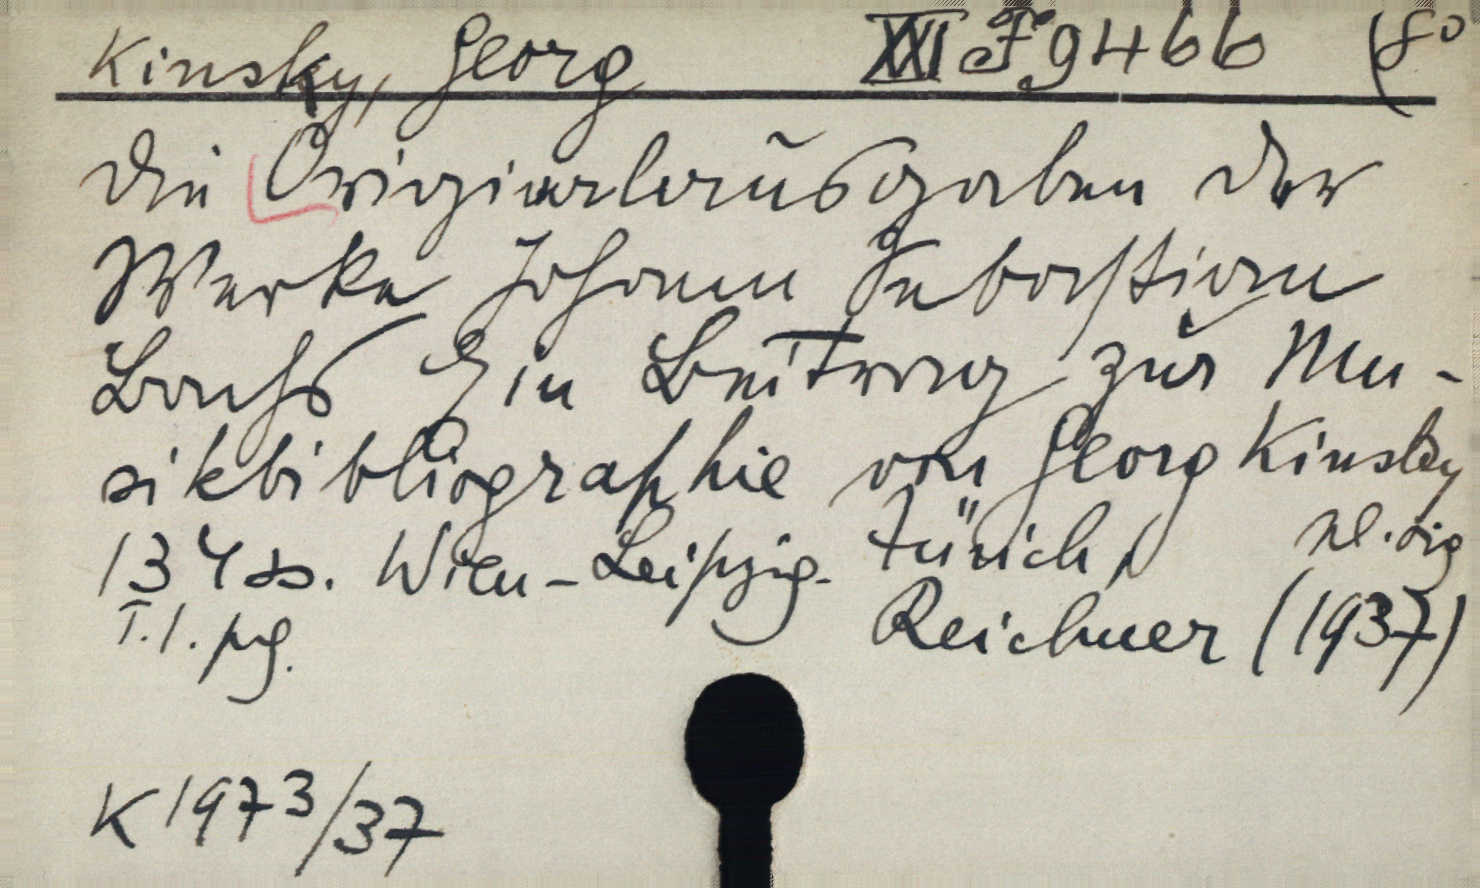 Kinsky, Georg XXI F 9466 (8°
Die Originalausgaben der
Werke Johann Sebastian
Bachs Ein Beitrag zur Mu-
sikbibliographie von Georg Kinsky
134 ss. Wien-Leipzig- Zürich,
T. 1. pg. Reichner (1937)
K 1973/37